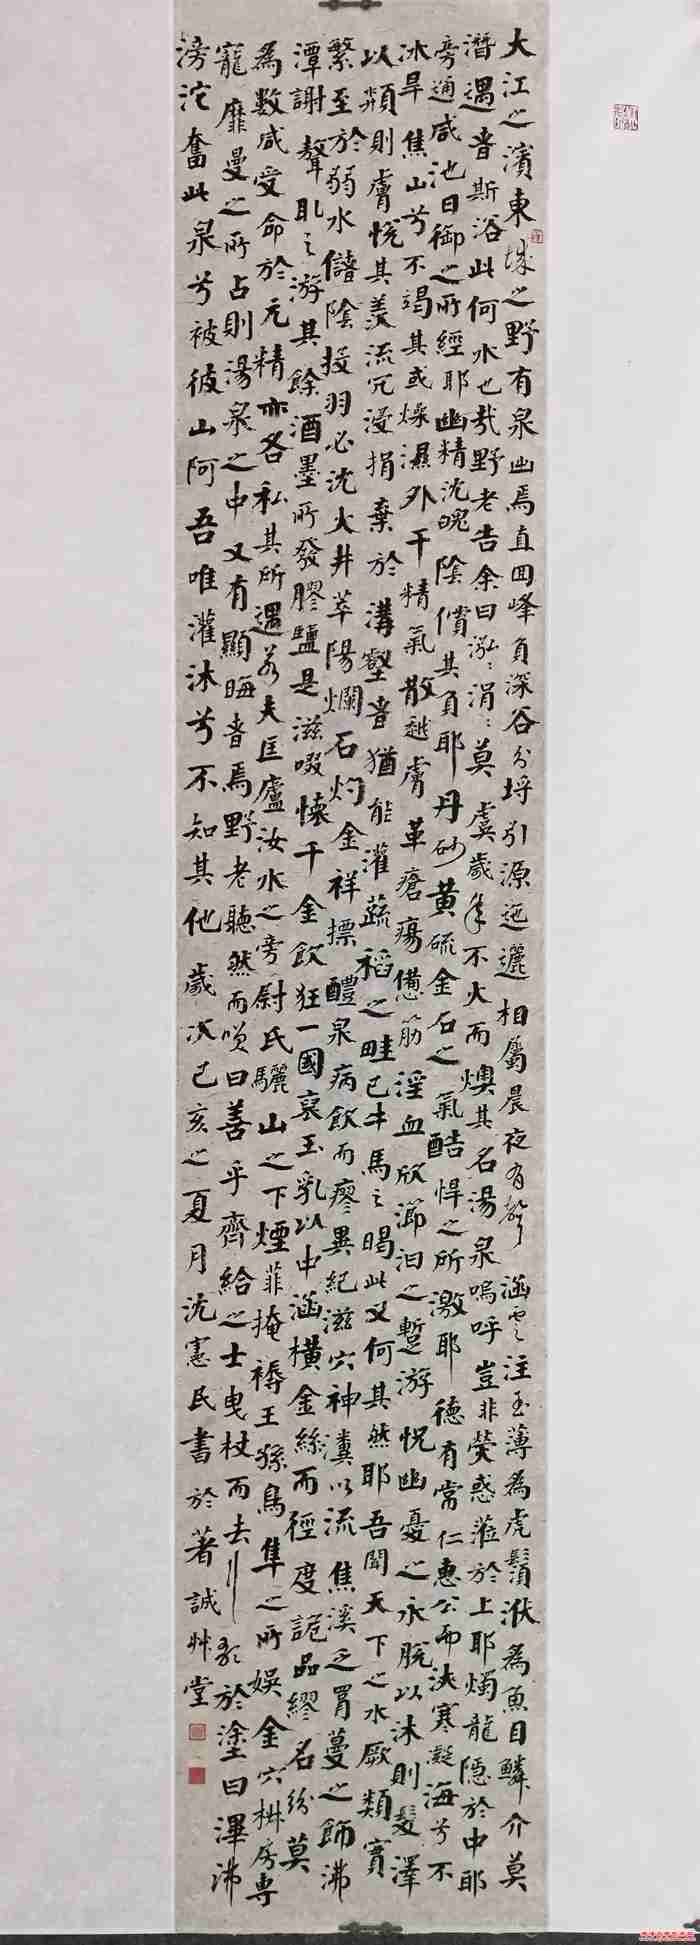 大江之濱東城之野有泉出焉直回峰負深谷分埒引源迤邐相屬晨夜有聲涵雲注玉薄為虎鬚洑為魚目鱗介莫
潛遇者斯浴此何水也哉野老告余曰泓〻涓〻莫虞歲年不火而燠其名湯泉嗚呼豈非熒惑蒞於上耶燭龍隱於中耶
旁通咸池日御之所經耶幽精沈魄陰償其負耶丹砂黃硫金石之氣酷悍之所激耶德有常仁惠公而浹寒凝海兮不
冰旱焦山兮不竭其或燥濕外干精氣散越膚革瘡瘍憊筋淫血欣瀄汩之蹔游怳幽憂之永脫以沐則髮澤
以頮則膚悅其羨流冗浸捐棄於溝壑者猶能灌蔬稻之畦已牛馬之暍此又何其然耶吾聞天下之水厥類實
繁至於弱水儲陰投羽必沈火井萃陽爛石灼金祥摽醴泉病飲而瘳異紀滋穴神瀵以流焦溪之罥蔓之飾沸
潭謝聱虬之游其餘酒墨所發膠鹽是滋啜懷千金飲狂一國裒玉乳以中涵橫金絲而徑度詭品繆名紛莫
為數咸受命於元精亦各私其所遇若夫匡廬汝水之旁尉氏驪山之下煙菲掩褥王孫鳥隼之所娛金穴椒房專
寵靡曼之所占則湯泉之中又有顯晦者焉野老聽然而唉曰善乎齊給之士曳杖而去行歌於塗曰渾沸
滂沱奮此泉兮被彼山阿吾唯灌沐兮不知其他歲次己亥之夏月沈憲民書於著誠艸堂